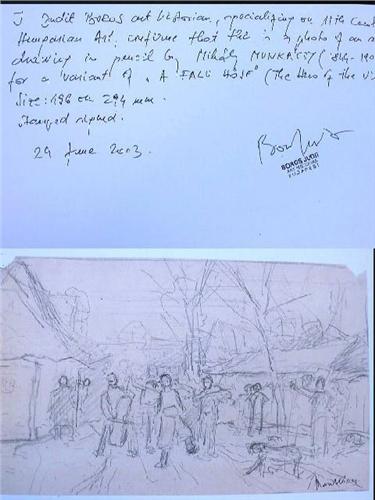 I Judit BOROS art historian, specializing on 19th cent
Hungarian Art, confirm that this is a photo of an
drawing in pencil by Mihály MUNKÁCSY (1844-190
for a variant of "A FALU HŐSE" (The Hero of the Vi
Size: 196 on 294 mm.
Stamped signed.
29 June 2003.
BOROS JUDIT
BUDAPEST